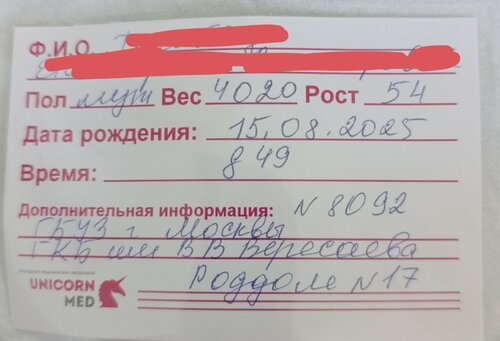 Ф.И.О.
Пол муж Вес 4020 Рост 54
Дата рождения: 15.08.2025
Время: 8 49
Дополнительная информация: N 8092
ГБУЗ г Москвы
ГКБ им В В Вересаева
Роддом N 17
UNICORN
MED